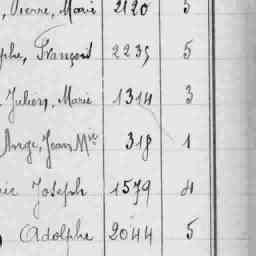 , Pierre, Marie 2120 5
phe, François 2235 5
, Julien, Marie 1314 3
Ange, Jean Mie 318 1
ie Joseph 1579 4
Adolphe 2044 5